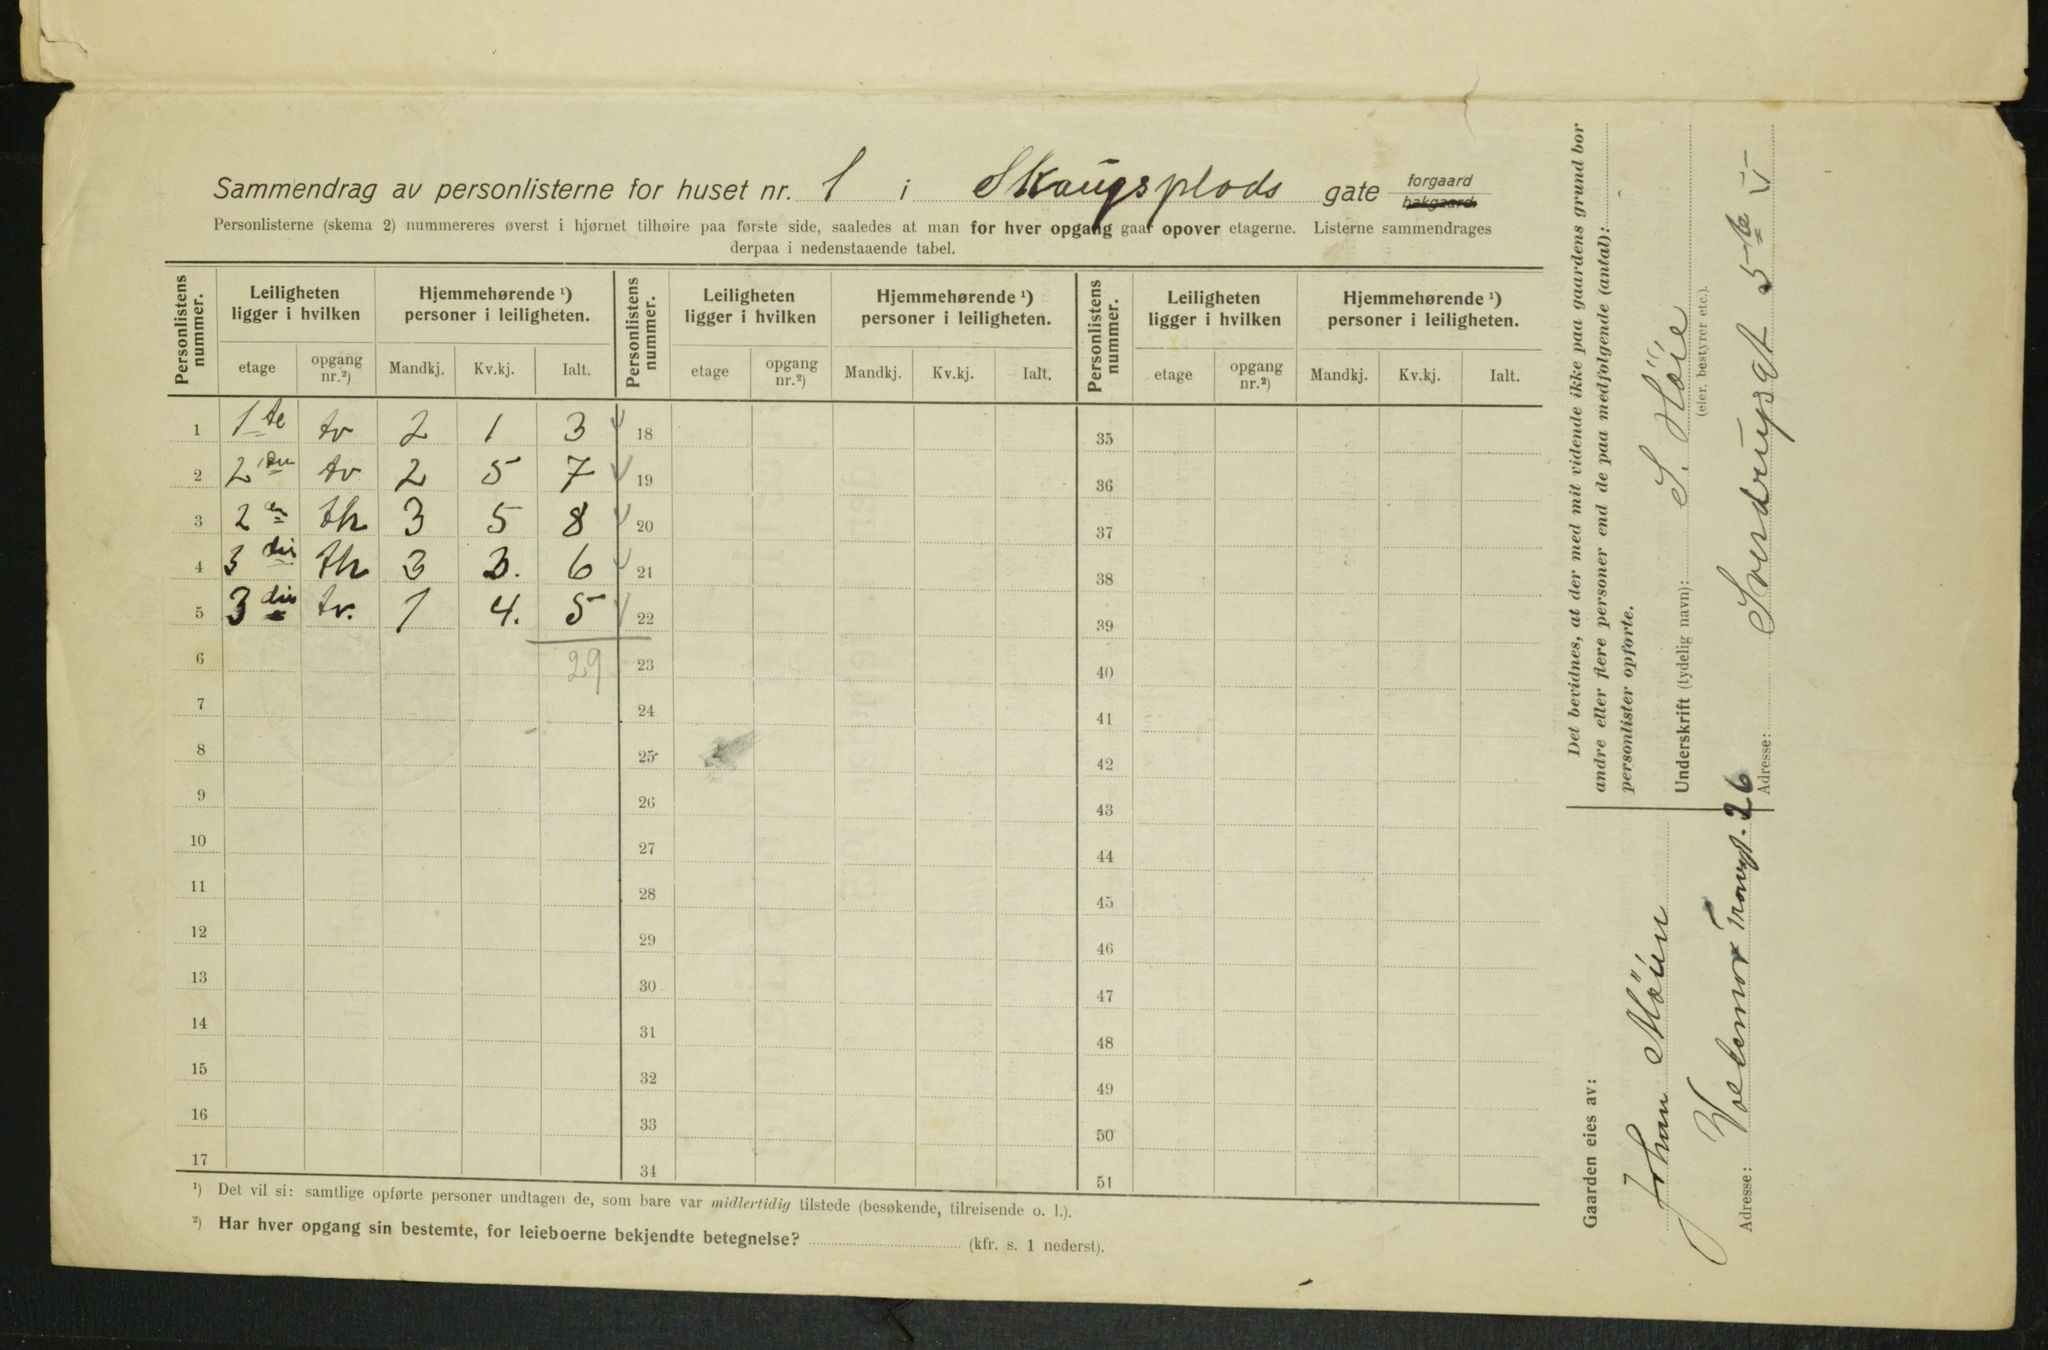 Sammendrag av personlisterne for huset nr. 1 i Skaugsplads gate forgaard hakgaard.
Personlisterne (skema 2) nummereres øverst i hjørnet tilhøire paa første side, saaledes at man for hver opgang gaar opover etagerne. Listerne sammendrages
derpaa i nedenstaaende tabel.
Personlistens nummer. Leiligheten ligger i hvilken Hjemmehørende ¹) personer i leiligheten. Personlistens nummer. Leiligheten ligger i hvilken Hjemmehørende ¹) personer i leiligheten. Personlistens nummer. Leiligheten ligger i hvilken Hjemmehørende ¹) personer i leiligheten.
etage opgang nr.²) Mandkj. Kv.kj. Ialt. etage opgang nr.²) Mandkj. Kv.kj. Ialt. etage opgang nr.²) Mandkj. Kv.kj. Ialt.
1 1te tv 2 1 3 18 35
2 2den tv 2 5 7 19 36
3 2en th 3 5 8 20 37
4 3die th 3 3. 6 21 38
5 3die tv. 1 4. 5 22 39
6 29 23 40
7 24 41
8 25 42
9 26 43
10 27 44
11 28 45
12 29 46
13 30 47
14 31 48
15 32 49
16 33 50
17 34 51
¹) Det vil si: samtlige opførte personer undtagen de, som bare var midlertidig tilstede (besøkende, tilreisende o. l.).
²) Har hver opgang sin bestemte, for leieboerne bekjendte betegnelse? (kfr. s. 1 nederst).
Det bevidnes, at der med mit vidende ikke paa gaardens grund bor
andre eller flere personer end de paa medfølgende (antal):
personlister opførte.
Underskrift (tydelig navn): S. Höie
(eier, bestyrer etc.).
Adresse: Sverdrupsgt 5te V
Gaarden eies av:
Johan
Adresse: 26